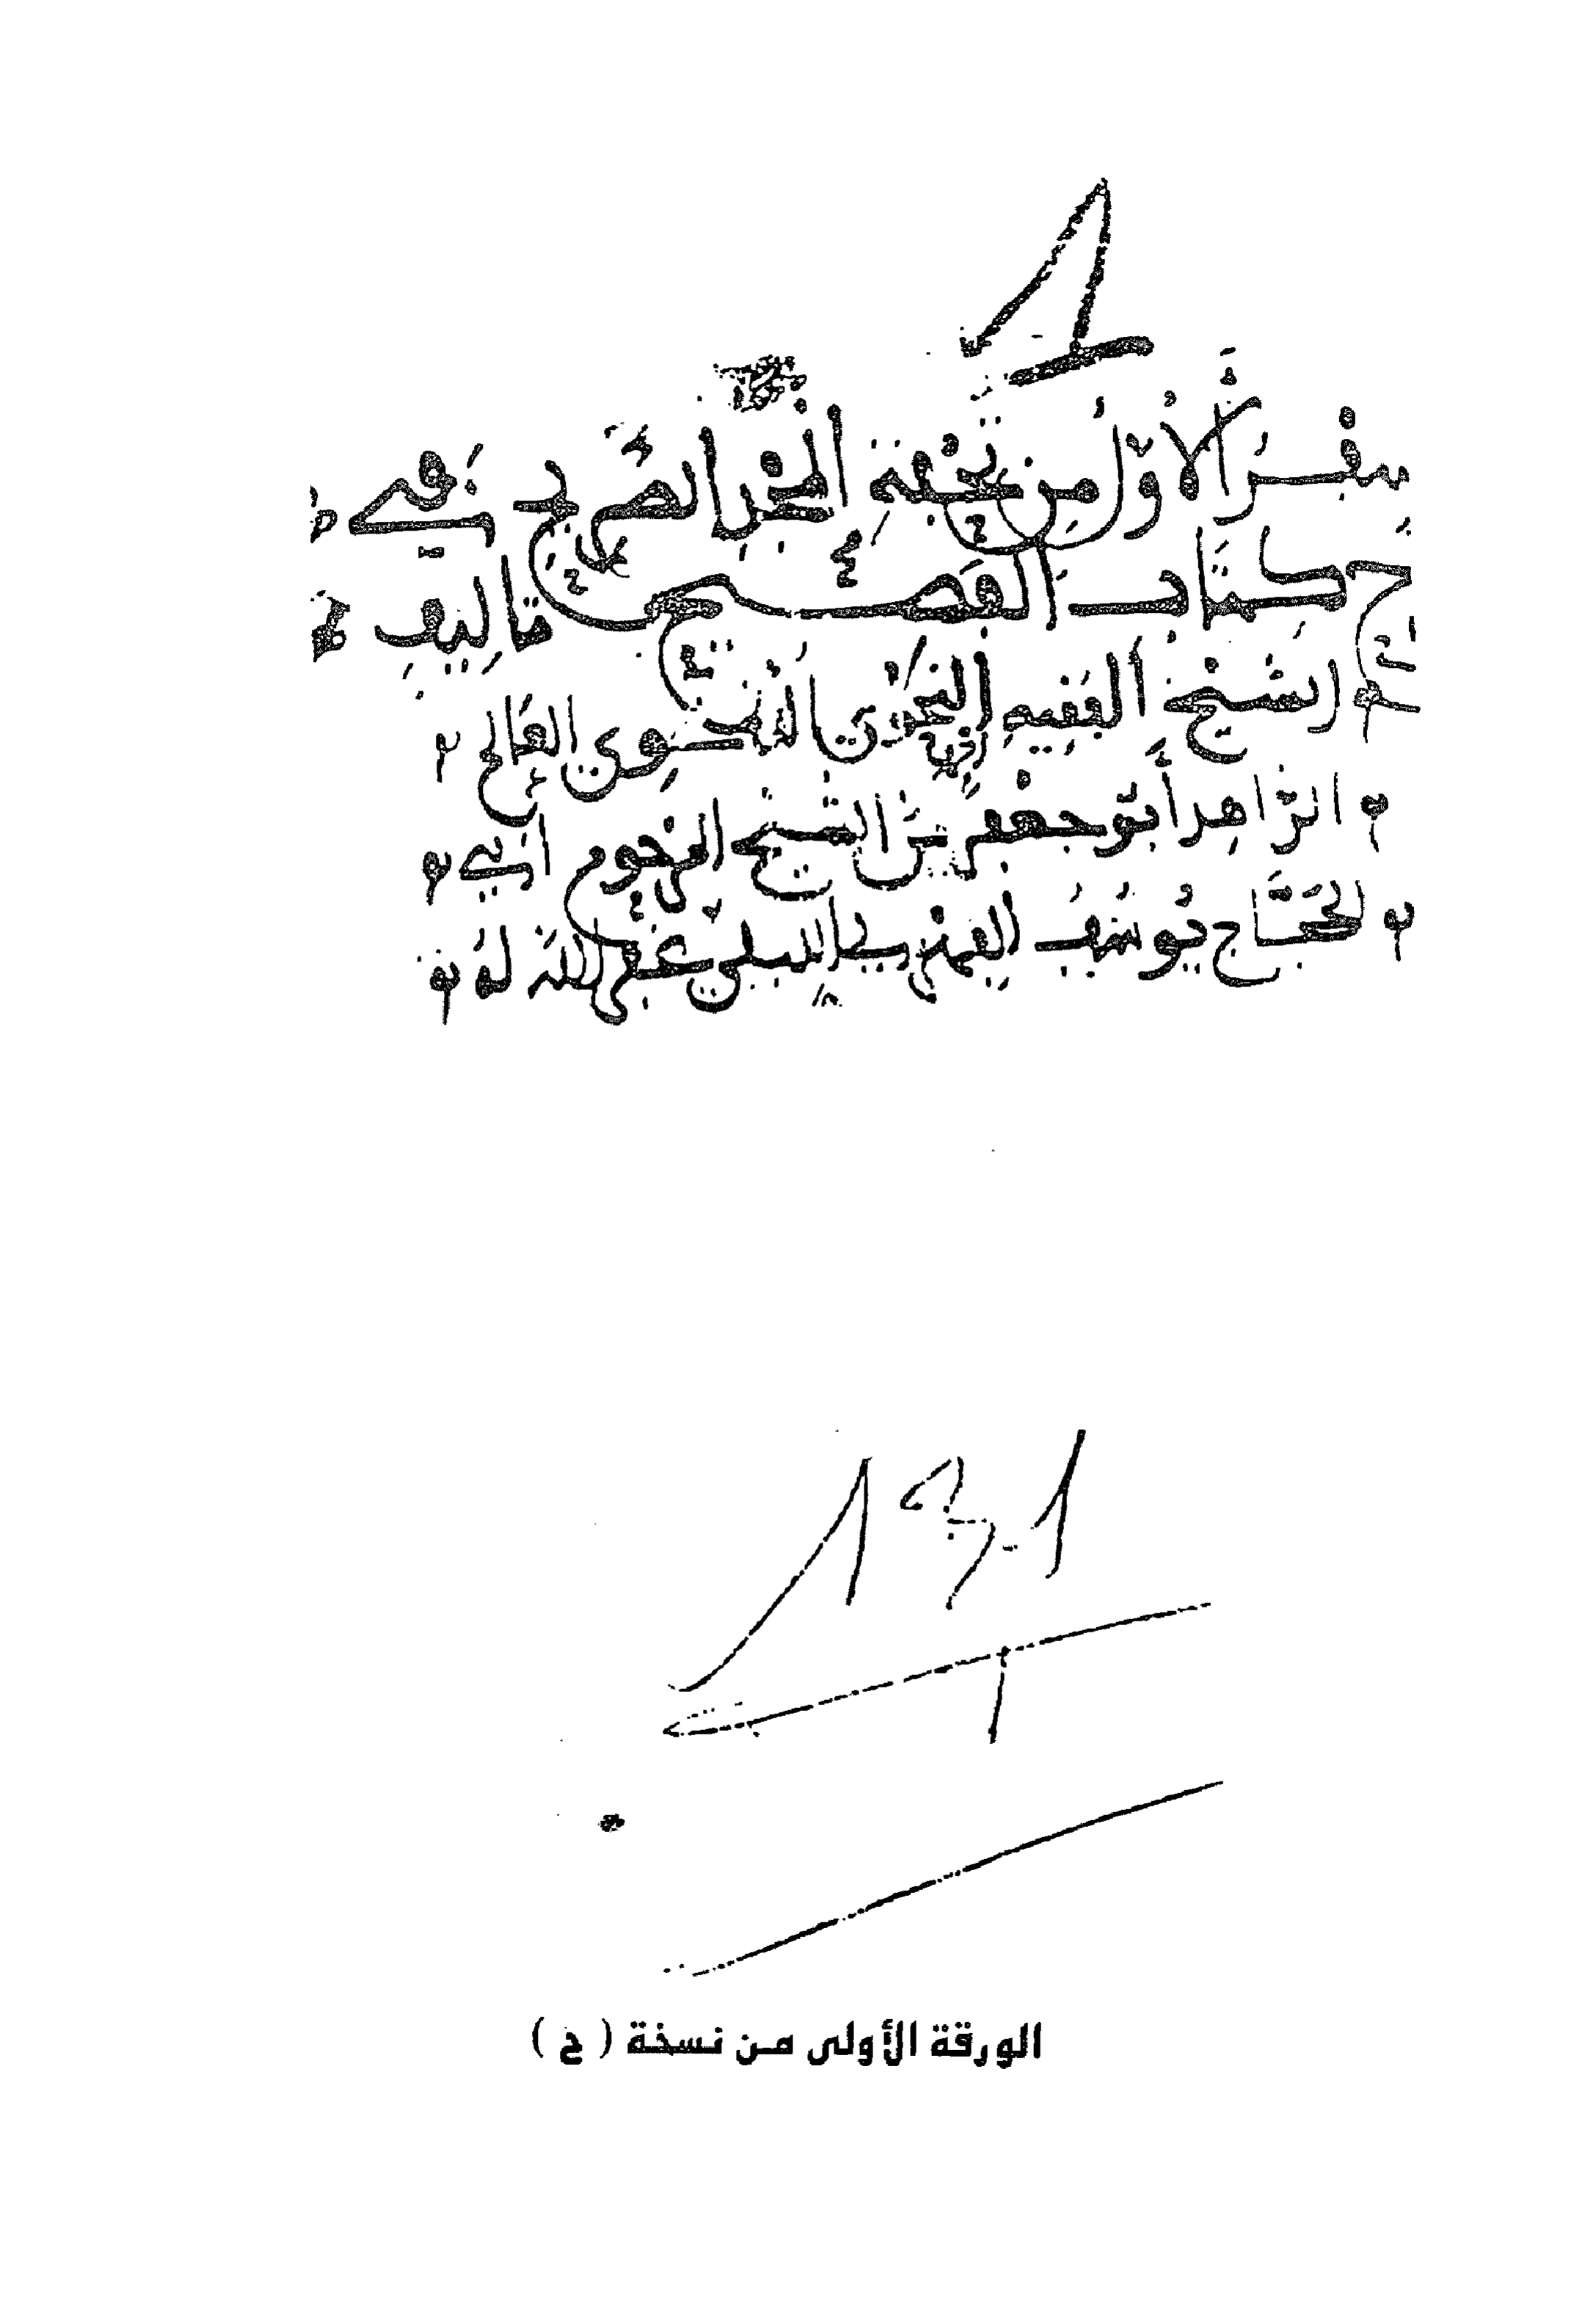 1
سفر الأول من تحفة المجد الصريح في
ح كتاب الفصيح تاليف
الشيخ الفقيه النحوي اللغوي العالم
الزاهد أبو جعفر بن الشيخ المرحوم أبي
الحجاج يوسف الفهري اللبلي غفر الله له
الورقة الأولى من نسخة ( ح )